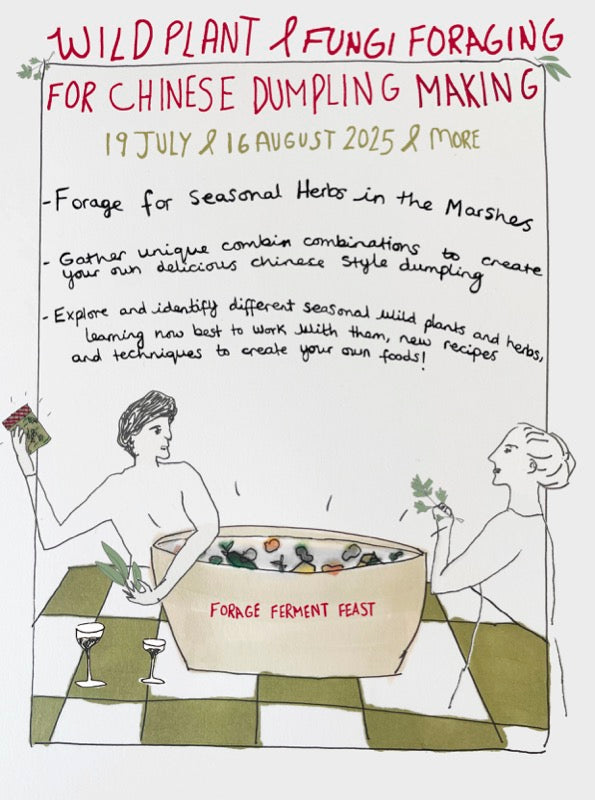 WILD PLANT & FUNGI FORAGING
FOR CHINESE DUMPLING MAKING
19 JULY & 16 AUGUST 2025 & MORE
- Forage for Seasonal Herbs in the Marshes
- Gather unique combin combinations to create
your own delicious chinese style dumpling
- Explore and identify different seasonal wild plants and herbs,
learning now best to work with them, new recipes
and techniques to create your own foods!
FORAGE FERMENT FEAST